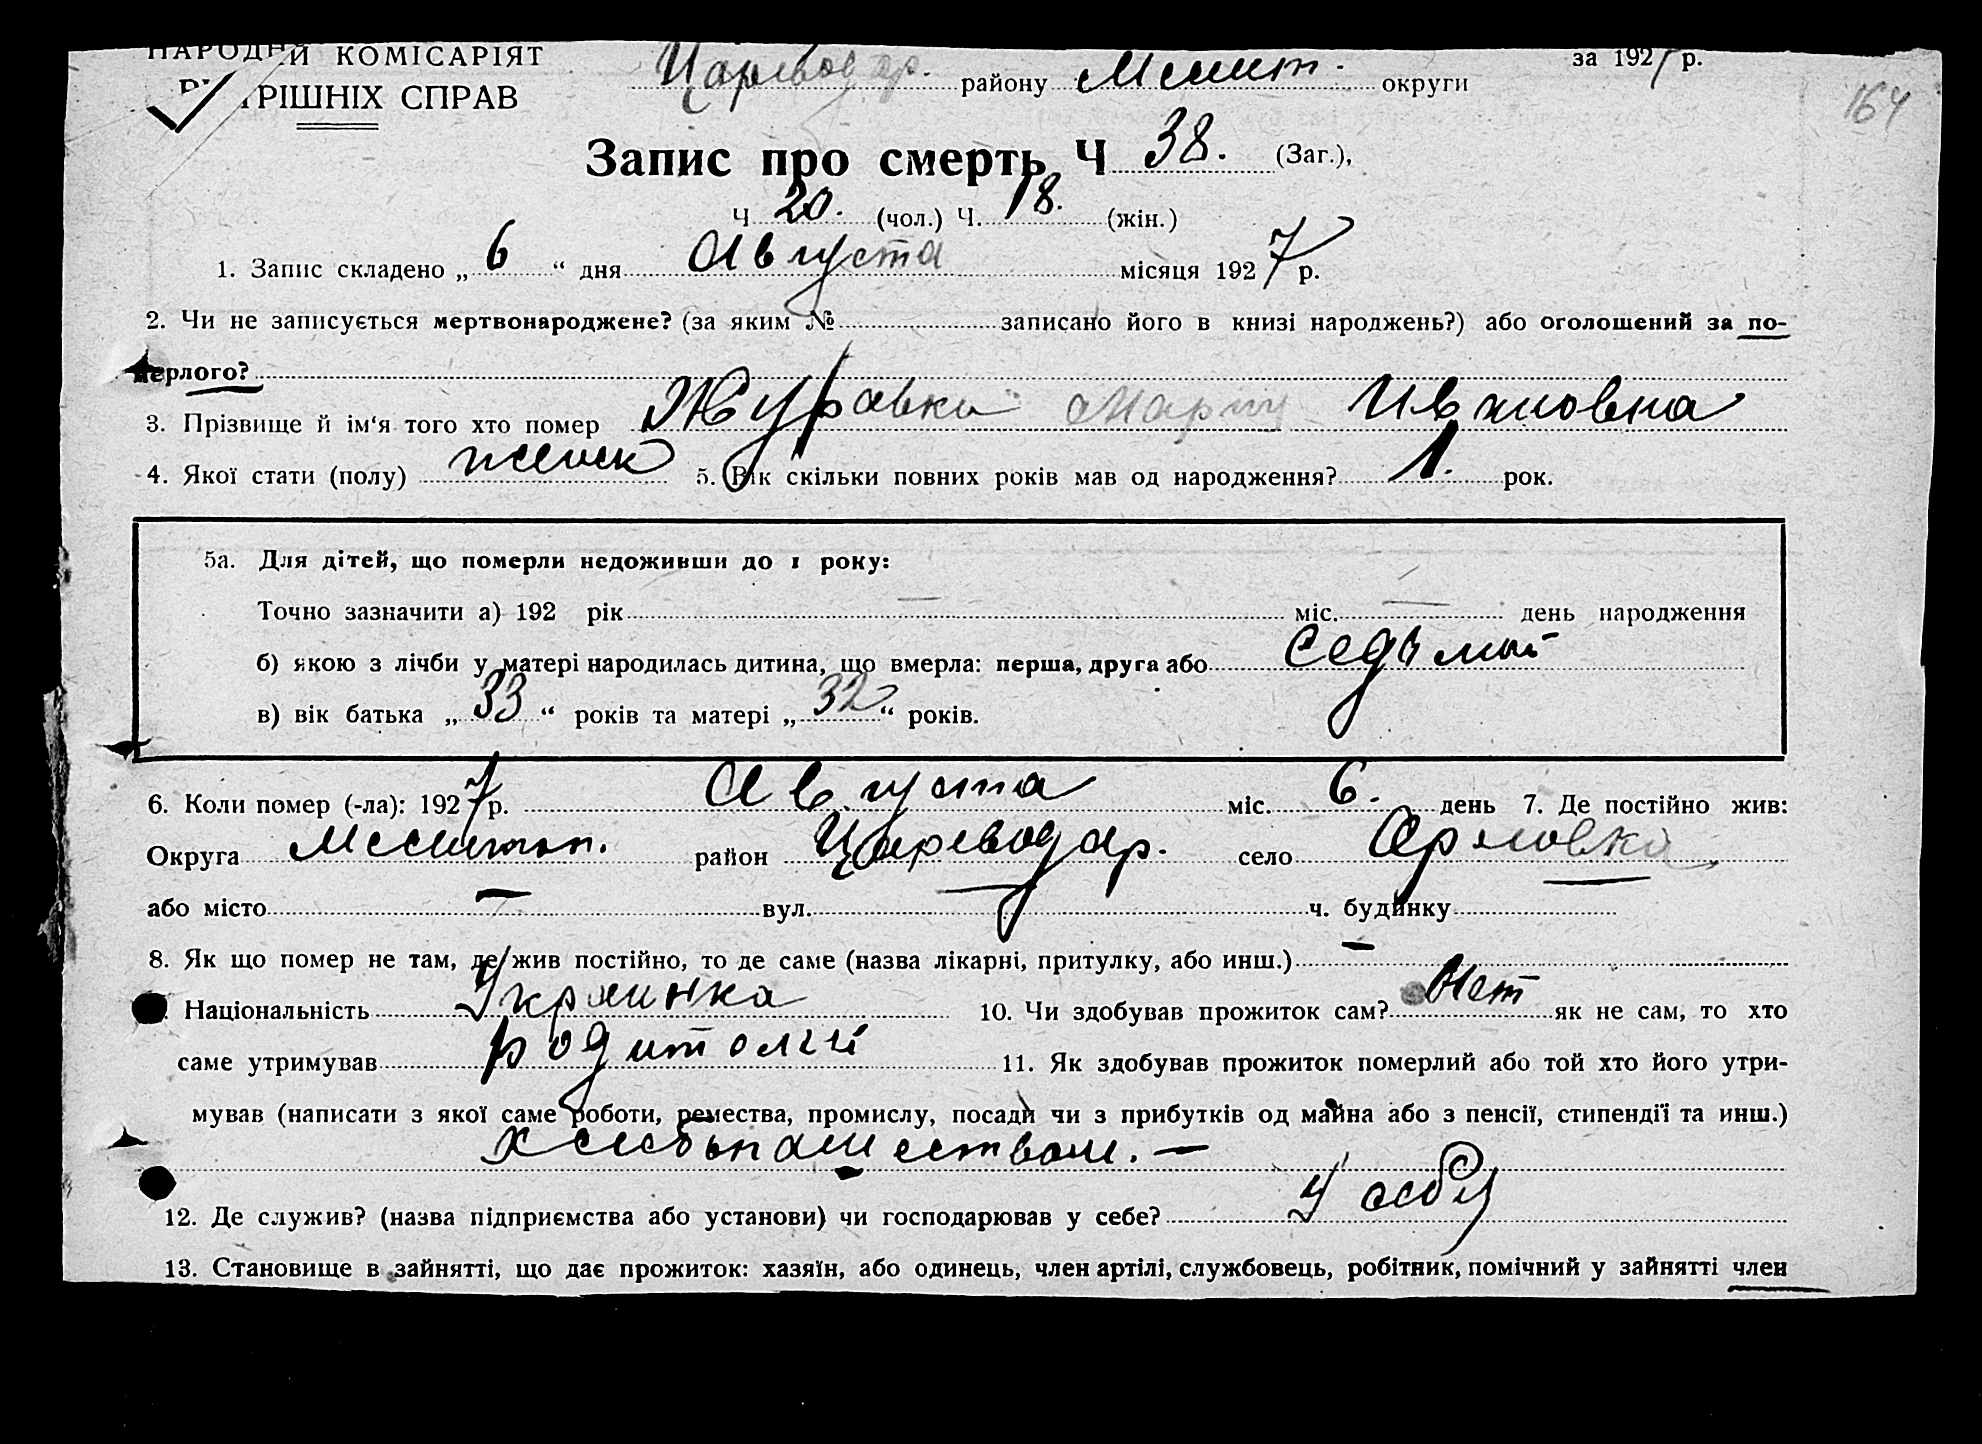 НАРОДНІЙ КОМІСАРІЯТ
ВНУТРІШНІХ СПРАВ
Цареводар. району Мелит. округи
за 1927 р.
164
Запис про смерть Ч 38. (Заг.),
Ч 20. (чол.) Ч. 18. (жін.)
1. Запис складено „ 6 “ дня Августа місяця 1927 р.
2. Чи не записується мертвонароджене? (за яким № записано його в книзі народжень?) або оголошений за по-
мерлого?
3. Прізвище й ім‘я того хто помер Журавка Мария Ивановна
4. Якої стати (полу) женск 5. Вік скільки повних років мав од народження? 1. рок.
5а. Для дітей, що померли недоживши до 1 року:
Точно зазначити а) 192 рік — міс. — день народження
б) якою з лічби у матері народилась дитина, що вмерла: перша, друга або седьмый
в) вік батька „ 33 “ років та матері „ 32 “ років.
6. Коли помер (-ла): 1927 р. Августа міс. 6. день 7. Де постійно жив:
Округа Мелитоп. район Цареводар. село Орловка
або місто — вул. — ч. будинку —
8. Як що помер не там, де жив постійно, то де саме (назва лікарні, притулку, або инш.) —
Національність Украинка 10. Чи здобував прожиток сам? Нет як не сам, то хто
саме утримував родители 11. Як здобував прожиток померлий або той хто його утри-
мував (написати з якої саме роботи, ремества, промислу, посади чи з прибутків од майна або з пенсії, стипендії та инш.)
хлебопашеством. —
12. Де служив? (назва підприємства або установи) чи господарював у себе? У себя
13. Становище в зайнятті, що дає прожиток: хазяїн, або одинець, член артілі, службовець, робітник, помічний у зайнятті член